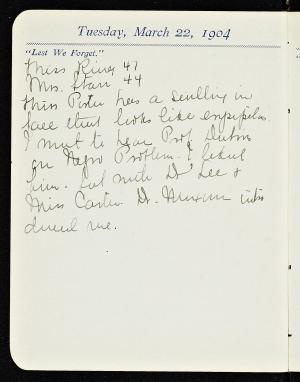 Tuesday, March 22, 1904
"Lest We Forget."
Miss King 47
Mrs. Starr 44
Miss Porter has a swelling in
face that looks like erysipelas.
I went to hear Prof.
on Negro Problem. I liked
him. Sat with Dr Lee &
Miss Carter. Dr. intro
duced me.